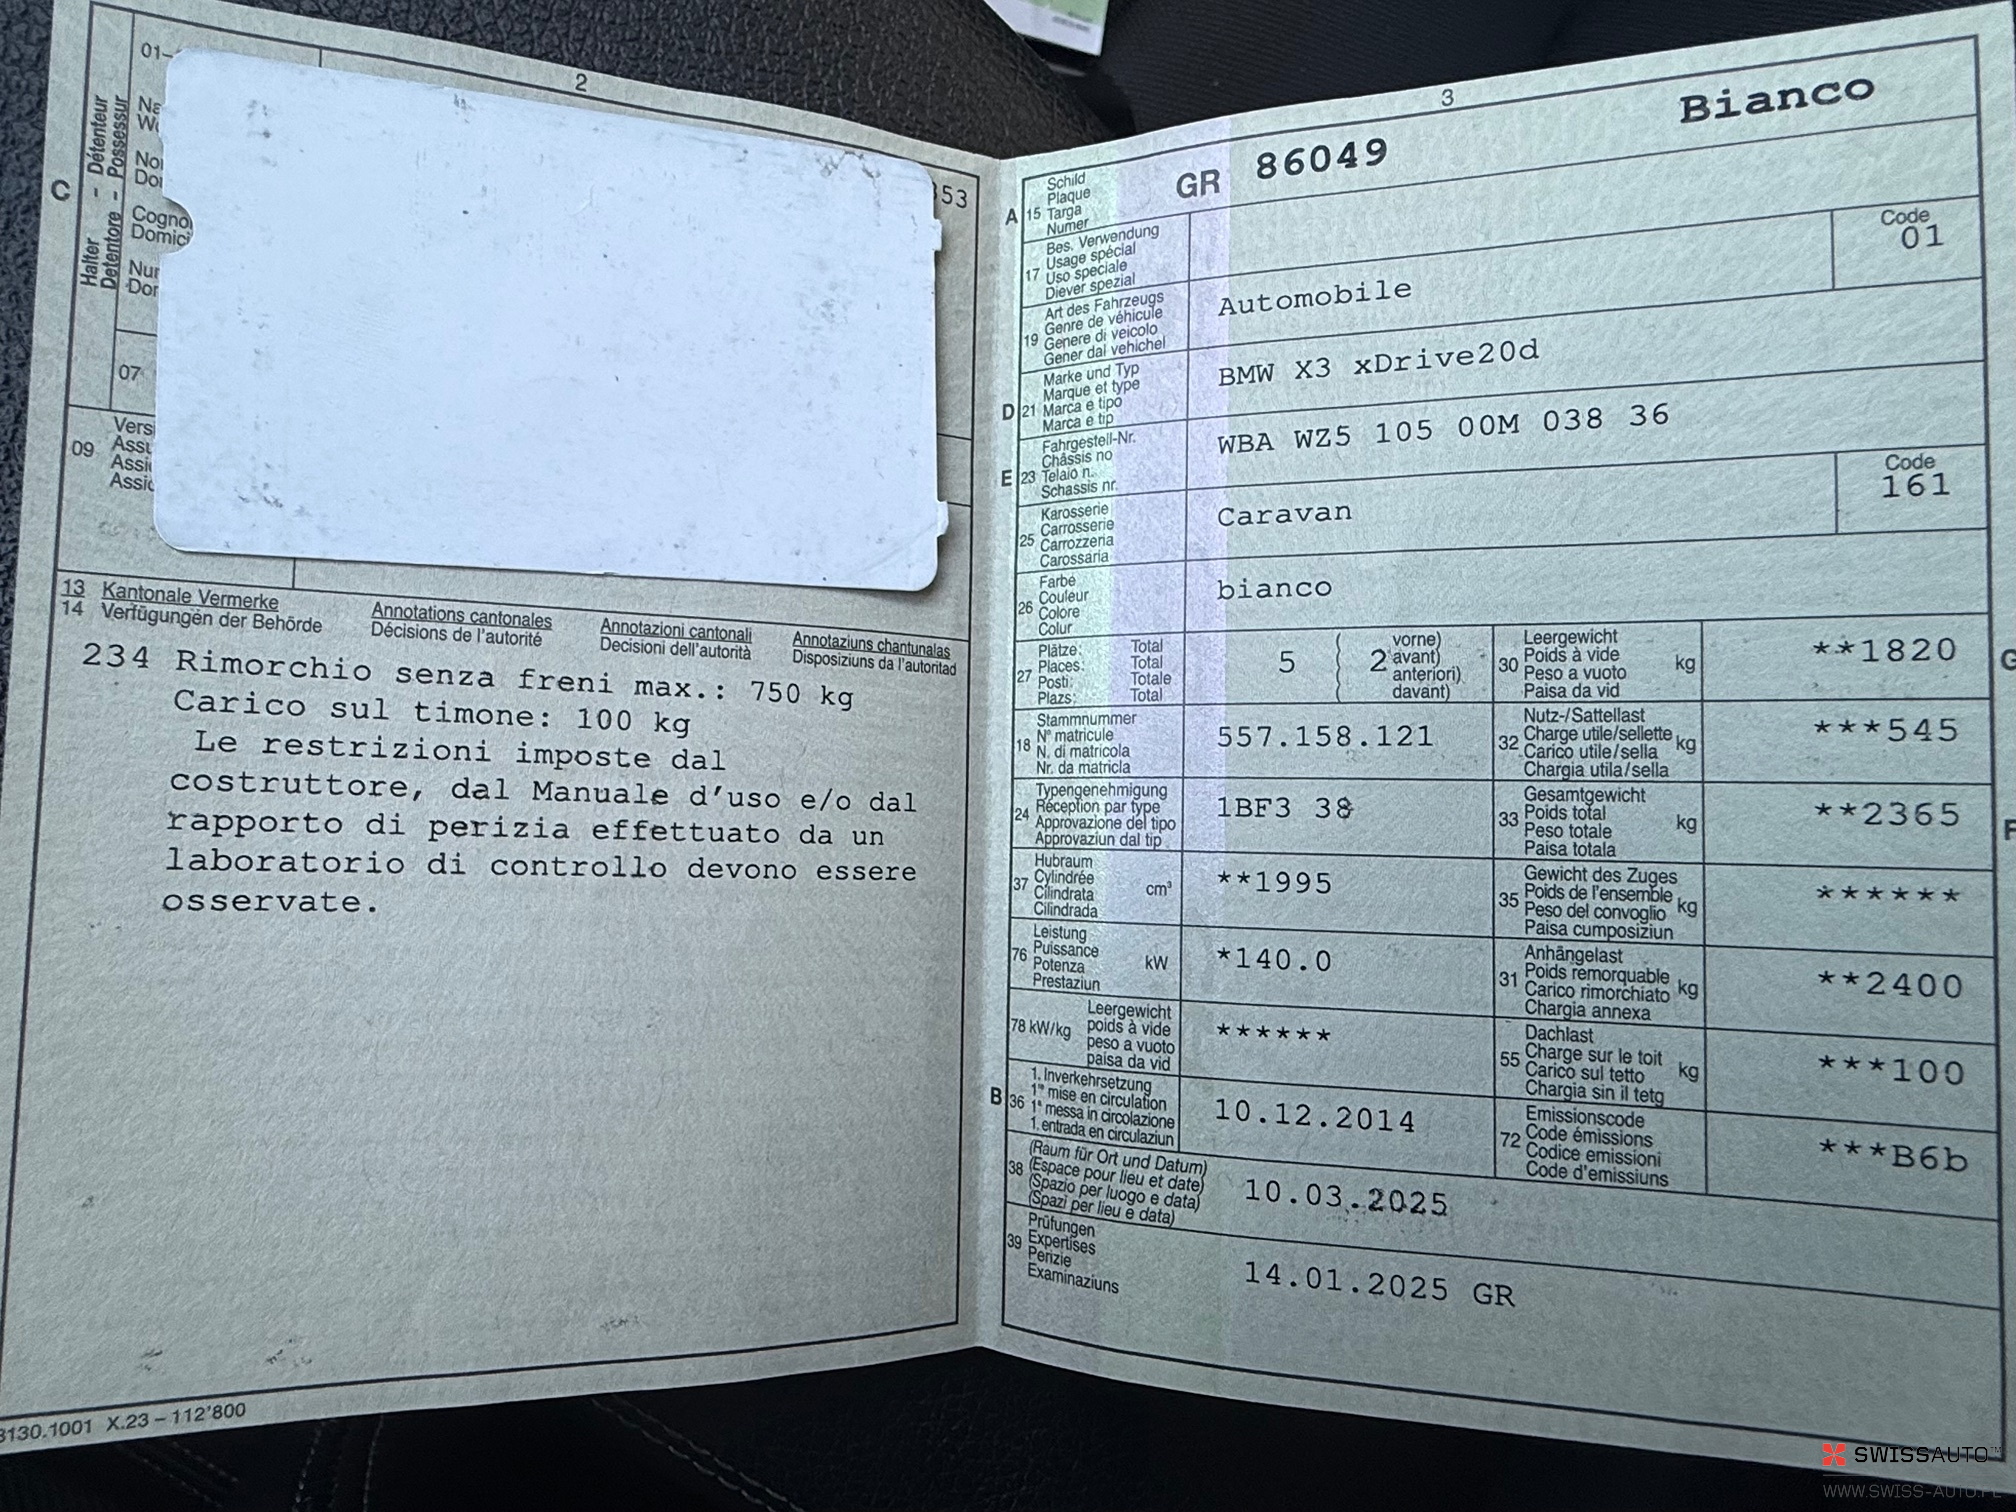 2
C
Halter - Détenteur
Detentore - Possessur
01-
53
Cogno
Domici
07
09
13 Kantonale Vermerke Annotations cantonales Annotazioni cantonali Annotaziuns chantunalas
14 Verfügungen der Behörde Décisions de l'autorité Decisioni dell'autorità Disposiziuns da l'autoritad
234 Rimorchio senza freni max.: 750 kg
Carico sul timone: 100 kg
Le restrizioni imposte dal
costruttore, dal Manuale d'uso e/o dal
rapporto di perizia effettuato da un
laboratorio di controllo devono essere
osservate.
3130.1001 X.23 – 112'800
3
Bianco
A 15 Schild
Plaque
Targa
Numer
GR 86049
17 Bes. Verwendung
Usage spécial
Uso speciale
Diever spezial
Code
01
19 Art des Fahrzeugs
Genre de véhicule
Genere di veicolo
Gener dal vehichel
Automobile
D 21 Marke und Typ
Marque et type
Marca e tipo
Marca e tip
BMW X3 xDrive20d
E 23 Fahrgestell-Nr.
Châssis no
Telaio n.
Schassis nr.
WBA WZ5 105 00M 038 36
25 Karosserie
Carrosserie
Carrozzeria
Carossaria
Caravan
Code
161
26 Farbe
Couleur
Colore
Colur
bianco
27 Plätze: Total
Places: Total
Posti: Totale
Plazs: Total
5 ( 2 vorne)
avant)
anteriori)
davant)
30 Leergewicht
Poids à vide
Peso a vuoto
Paisa da vid
kg
**1820
G
18 Stammnummer
N° matricule
N. di matricola
Nr. da matricla
557.158.121
32 Nutz-/Sattellast
Charge utile/sellette
Carico utile/sella
Chargia utila/sella
kg
***545
24 Typengenehmigung
Réception par type
Approvazione del tipo
Approvaziun dal tip
1BF3 38
33 Gesamtgewicht
Poids total
Peso totale
Paisa totala
kg
**2365
F
37 Hubraum
Cylindrée
Cilindrata
Cilindrada
cm³
**1995
35 Gewicht des Zuges
Poids de l'ensemble
Peso del convoglio
Paisa cumposiziun
kg
******
76 Leistung
Puissance
Potenza
Prestaziun
kW
*140.0
31 Anhängelast
Poids remorquable
Carico rimorchiato
Chargia annexa
kg
**2400
78 kW/kg Leergewicht
poids à vide
peso a vuoto
paisa da vid
******
55 Dachlast
Charge sur le toit
Carico sul tetto
Chargia sin il tetg
kg
***100
B 36 1. Inverkehrsetzung
1re mise en circulation
1a messa in circolazione
1. entrada en circulaziun
10.12.2014
72 Emissionscode
Code émissions
Codice emissioni
Code d'emissiuns
***B6b
38 (Raum für Ort und Datum)
(Espace pour lieu et date)
(Spazio per luogo e data)
(Spazi per lieu e data)
10.03.2025
39 Prüfungen
Expertises
Perizie
Examinaziuns
14.01.2025 GR
SWISSAUTO™
WWW.SWISS-AUTO.PL